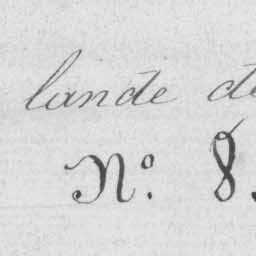 lande de
Nº. 8.